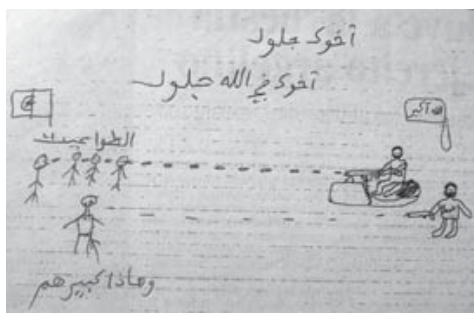 أخوك جلول
أخوك في الله جلول
الله أكبر
الطواغيت
وماذا كبيرهم